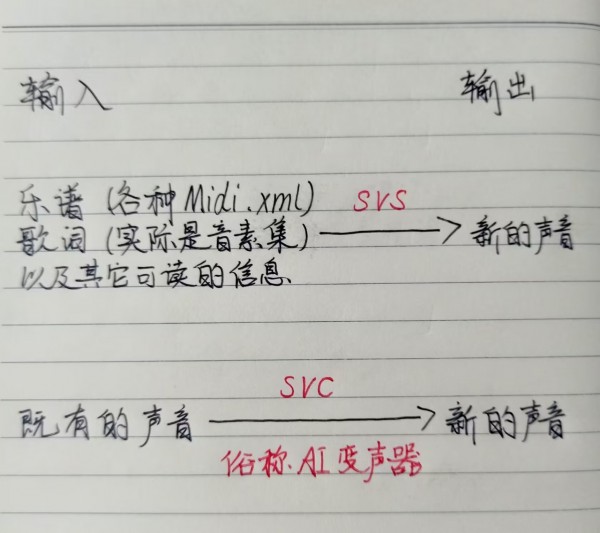 输入 输出
乐谱(各种Midi.xml) SVS
歌词(实际是音素集) 新的声音
以及其它可读的信息
SVC
既有的声音 新的声音
俗称AI变声器